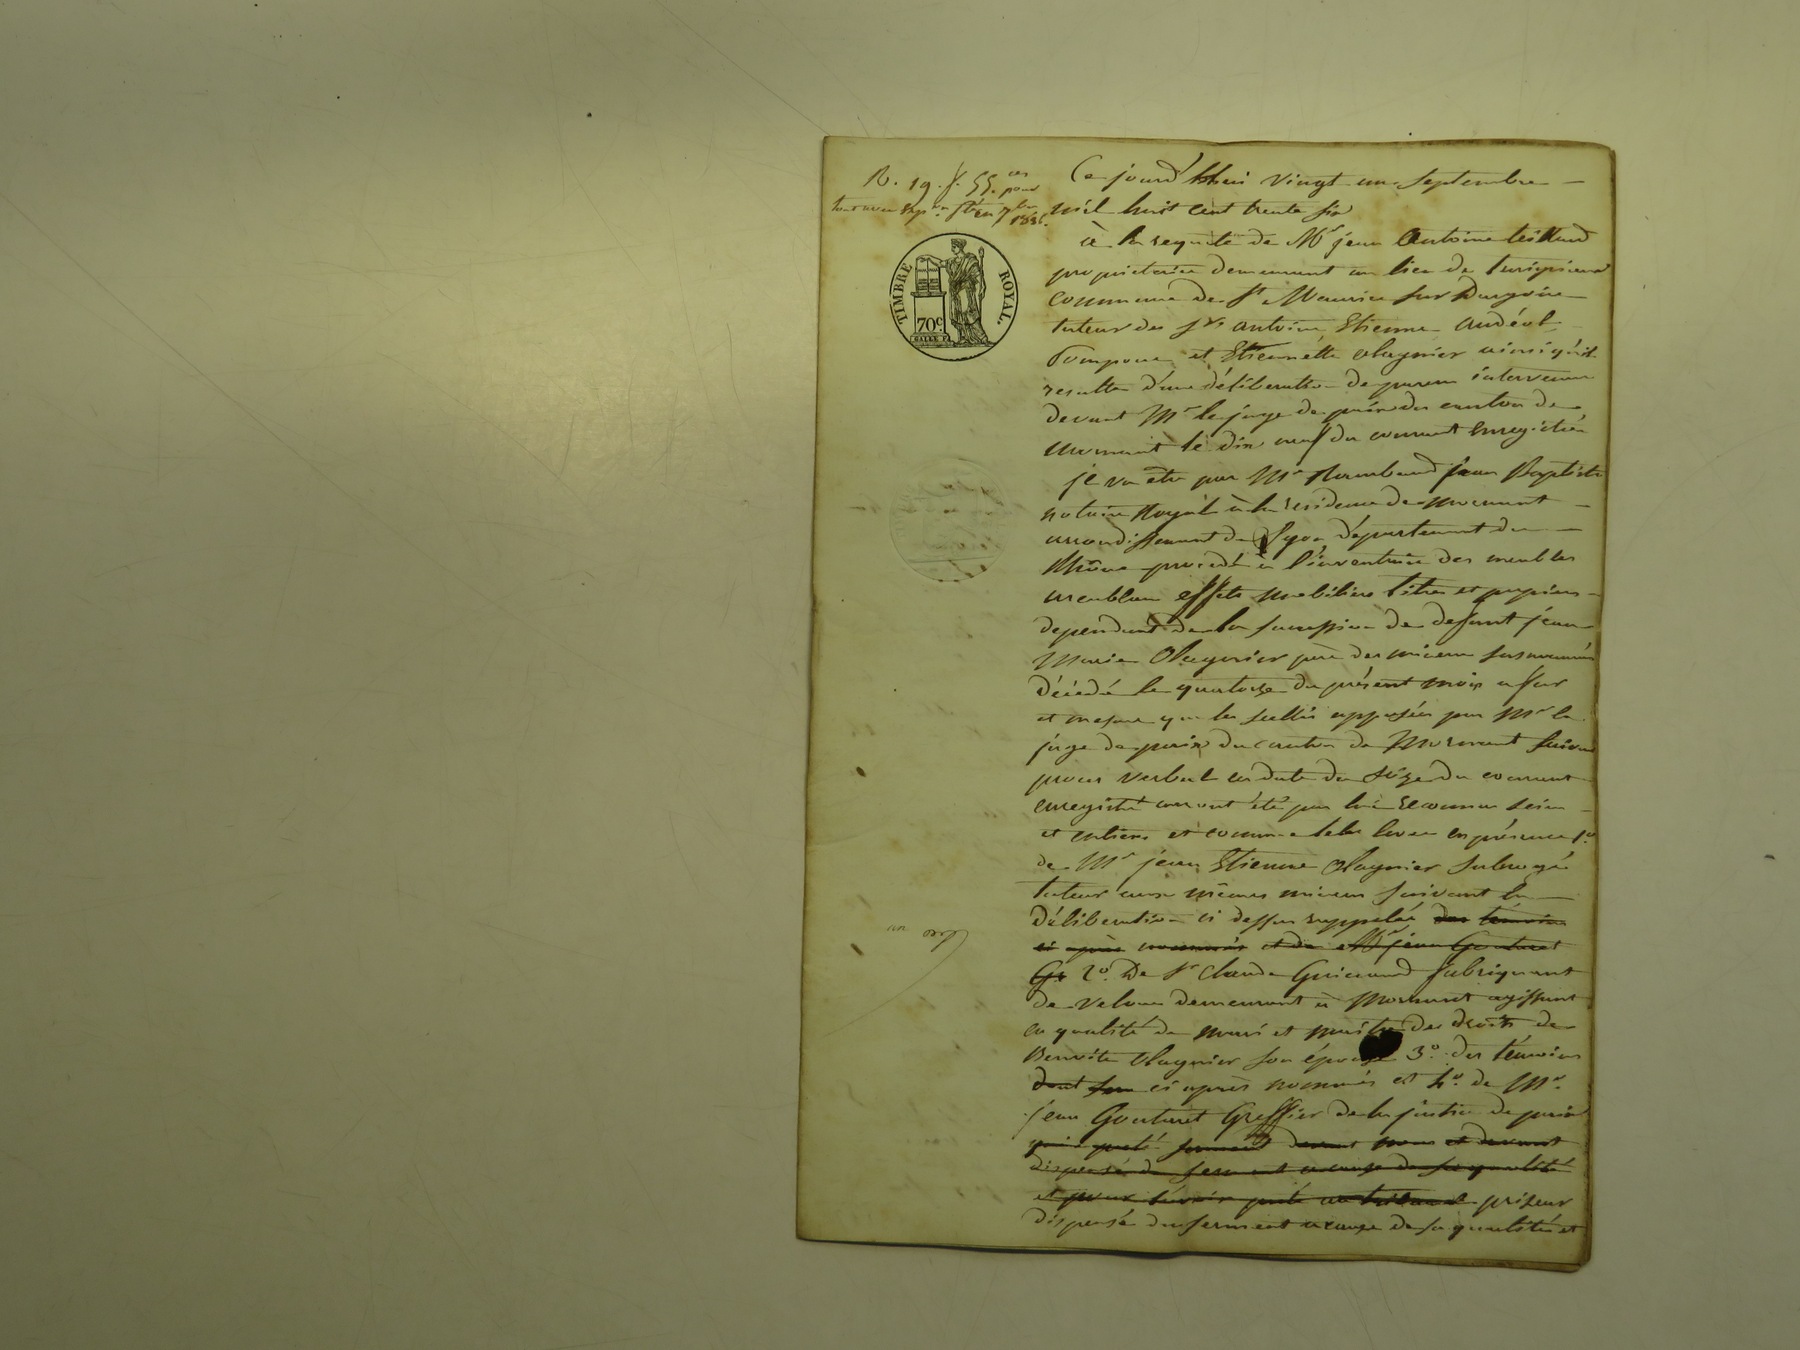 R. 19. f. 55. ces pour
Ce jourd'hhui vingt-un septembre
mil huit cent trente six
à la requete de Mr jean Antoine
propriétaire demeurant au lieu de
commune de St Maurice sur Dargoire
tuteur des Srs antoine, Etienne Andéol
et Etiennette olagnier ainsi qu'il
resulte d'une déliberation de parens intervenue
devant Mr le juge de paix du canton de
mornant le dix neuf du courant enregistrée
il va etre par Mr jean Baptiste
notaire Royal à la residence de mornant
arrondissement de Lyon département du
Rhône procédé à l'inventaire des meubles
meublans effets mobiliers titres et papiers
dependant de la succession de defunt jean
Marie Olagnier père des mineurs susnommés
décédé le quatorze du présent mois a fur
et mesure que les scellés apposées par Mr le
juge de paix du canton de Mornant suivant
procès verbal en date du seize du courant
enregistré auront été par lui reconnus sains
et entiers et comme tels levés en présence 1o.
de Mr jean Etienne Olagnier subrogé
tuteur aux mêmes mineurs suivant la
déliberation ci dessus rappelée des témoins
ci après nommés et de Mr jean Goutaret
Gr 2o. De Sr Claude Guinand fabriquant
de velours demeurant à Mornant agissant
en qualité de mari et maitre des droits de
Benoite Olagnier son épouse 3o. des témoins
ci après nommés et 4o. de Mr.
jean Goutaret Greffier de la justice de paix
qui a preté serment devant nous et devant
dispensé de serment a cause de sa qualité
et pour priseur
dispensé du serment a cause de sa qualité et
TIMBRE ROYAL.
70c.